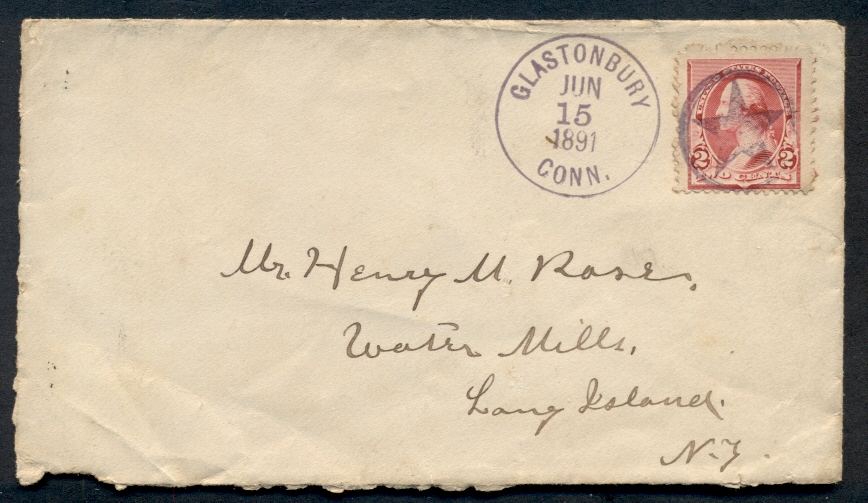 GLASTONBURY
JUN
15
1891
CONN.
UNITED STATES POSTAGE
2 2
TWO CENTS
Mr. Henry M. Rose,
Water Mills,
Long Island.
N.Y.